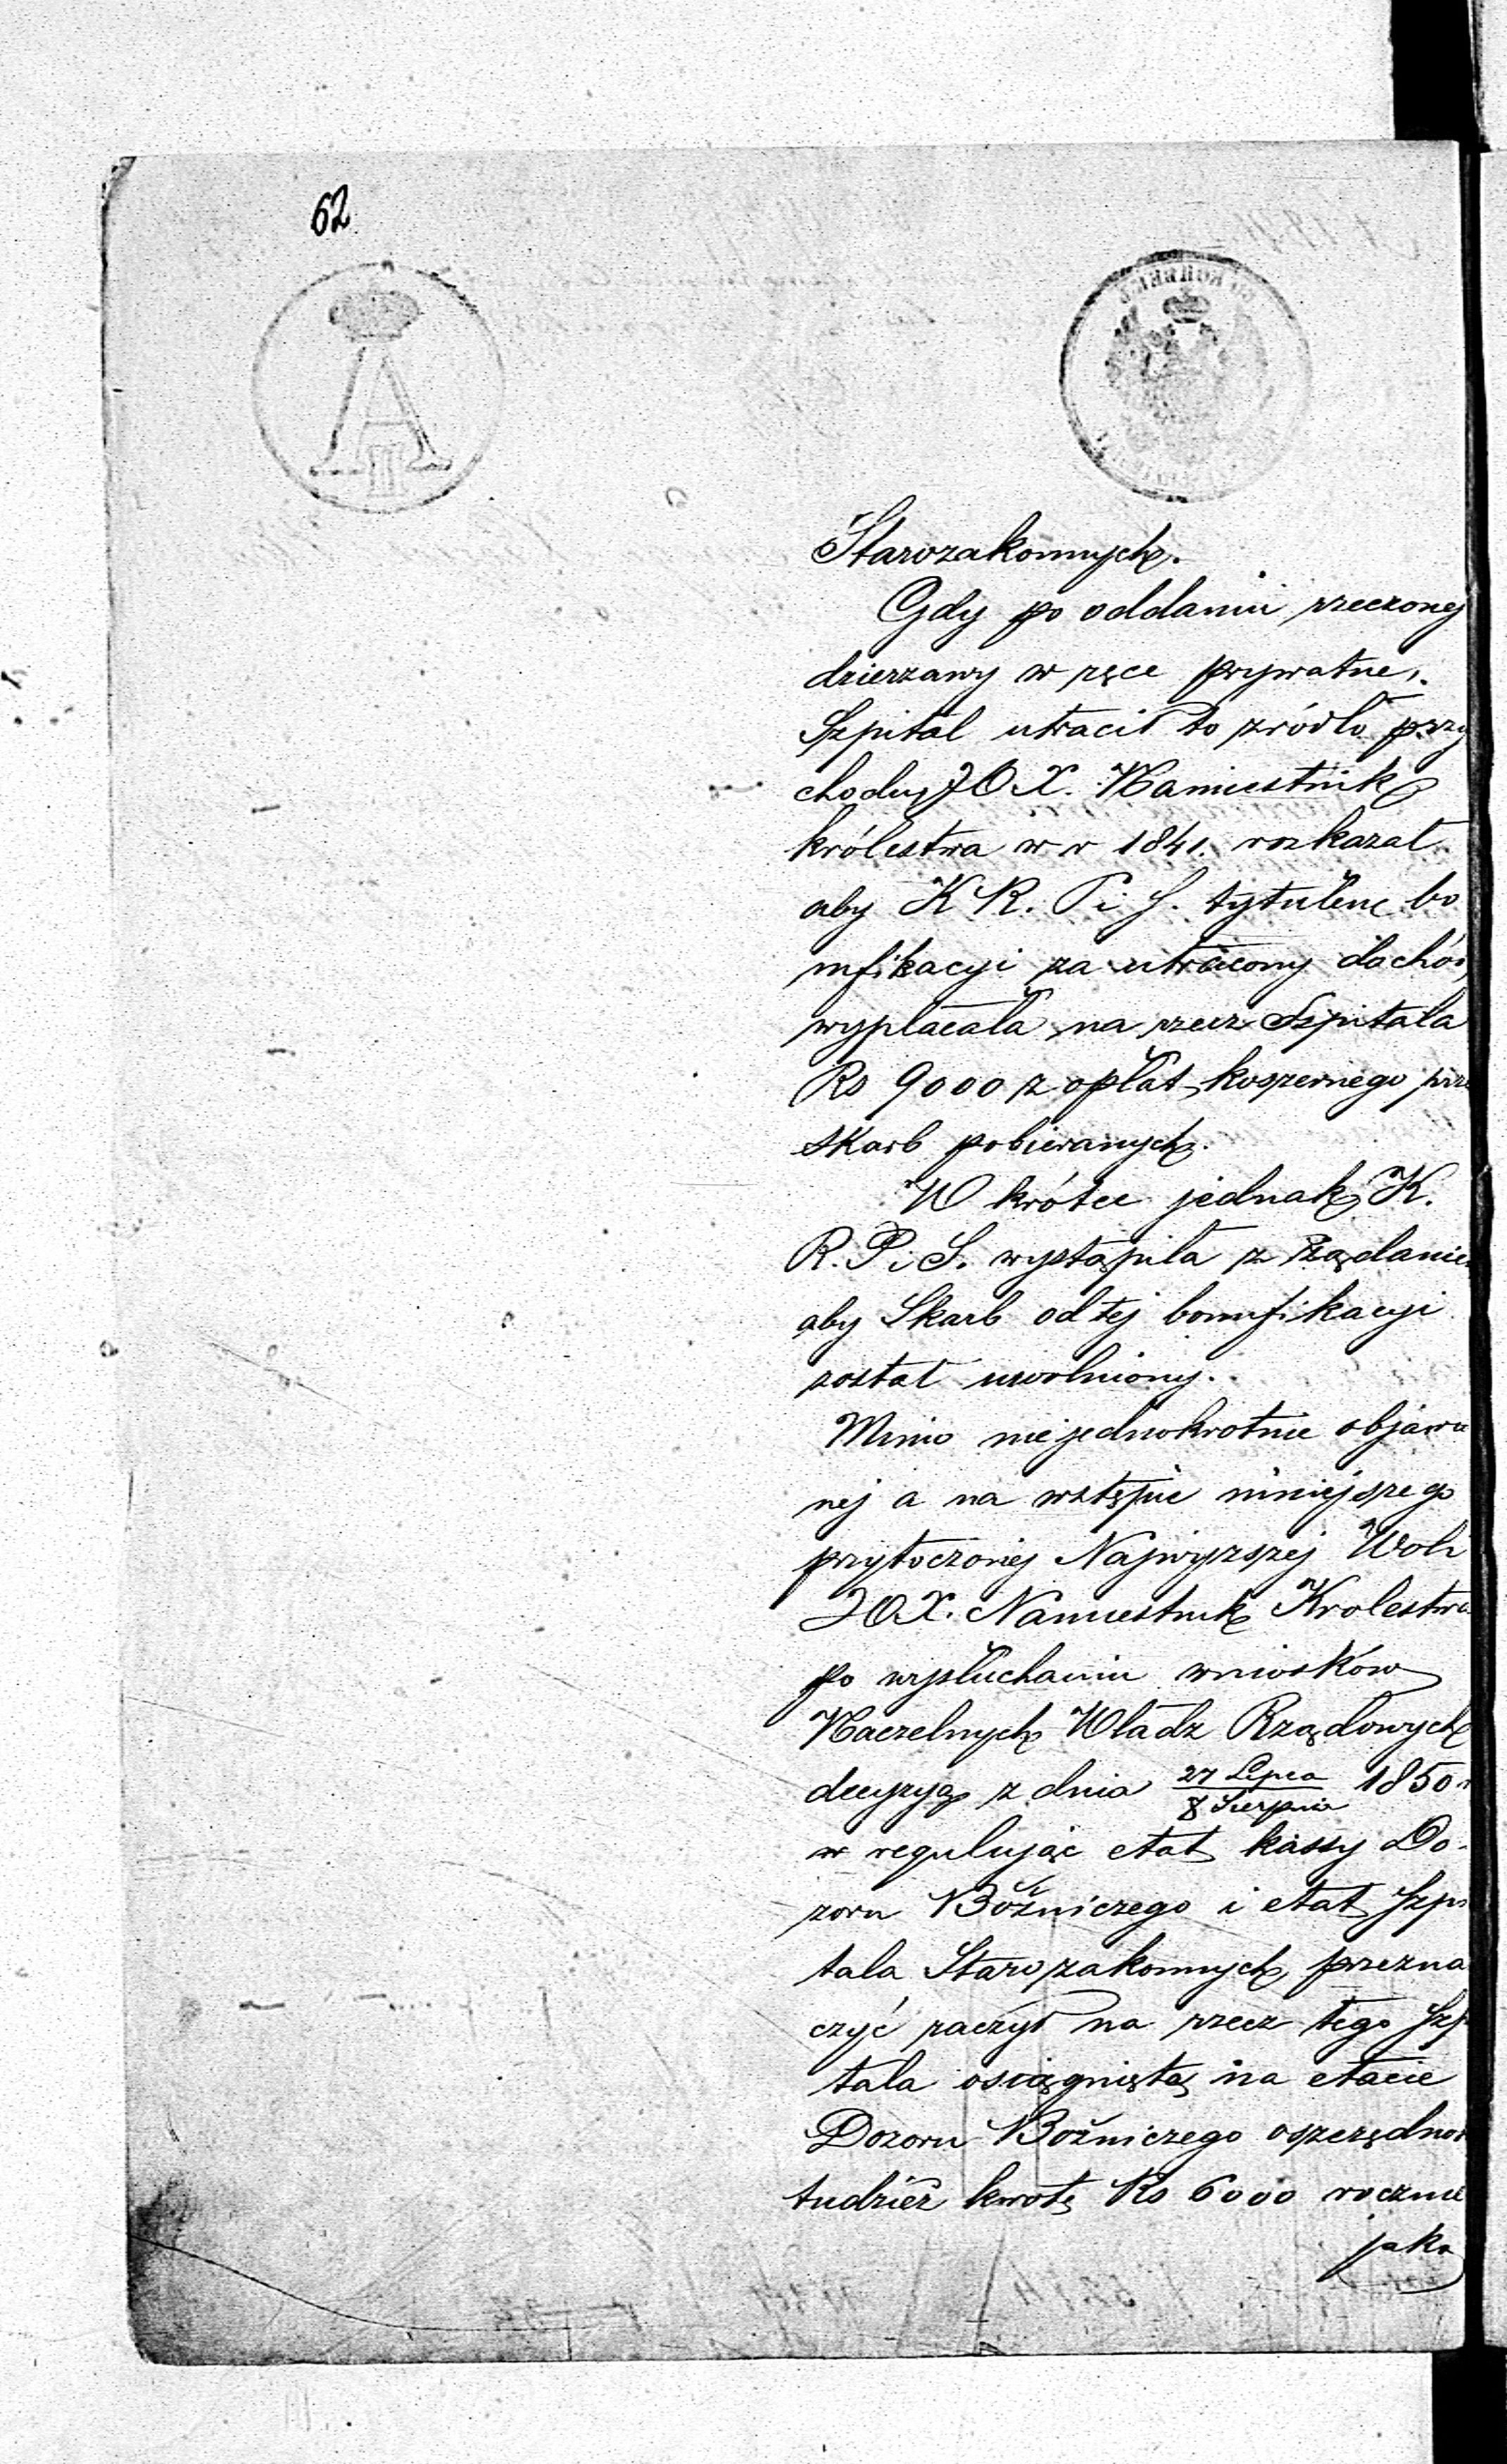 62
A
II
Starozakonnych.
Gdy po oddaniu rzeczonej
dzierzawy w ręce prywatne,
Szpital utracił to zródło przy
chodu, JO X. Namiestnik
królestwa w r 1841. rozkazał
aby K R. P i S. tytułem bo
nifikacyi za utracony dochód
wypłacała na rzecz Szpitala
Rs 9000 z opłat koszernego prze
skarb pobieranych.
W krótce jednak K.
R. P. i S. wystąpiła z żądaniem
aby Skarb od tej bonifikacyi
został uwolniony.
Mimo niejednokrotnie objawio
nej a na wstępie niniejszego
przytoczonej Najwyzszej Woli
JOX. Namiestnik Krolestwa
po wysłuchaniu wniosków
Naczelnych Władz Rządowych
decyzyą z dnia 27 Lipca / 8 Sierpnia 1850 r
w regulując etat kassy Do-
zoru Bóźniczego i etat Szpi
tala Starozakonnych, przezna
czyć raczył na rzecz tego Szpi
tala osiągniętą na etacie
Dozoru Bóźniczego oszczędność
tudzież kwotę Rs 6000 rocznie
jako